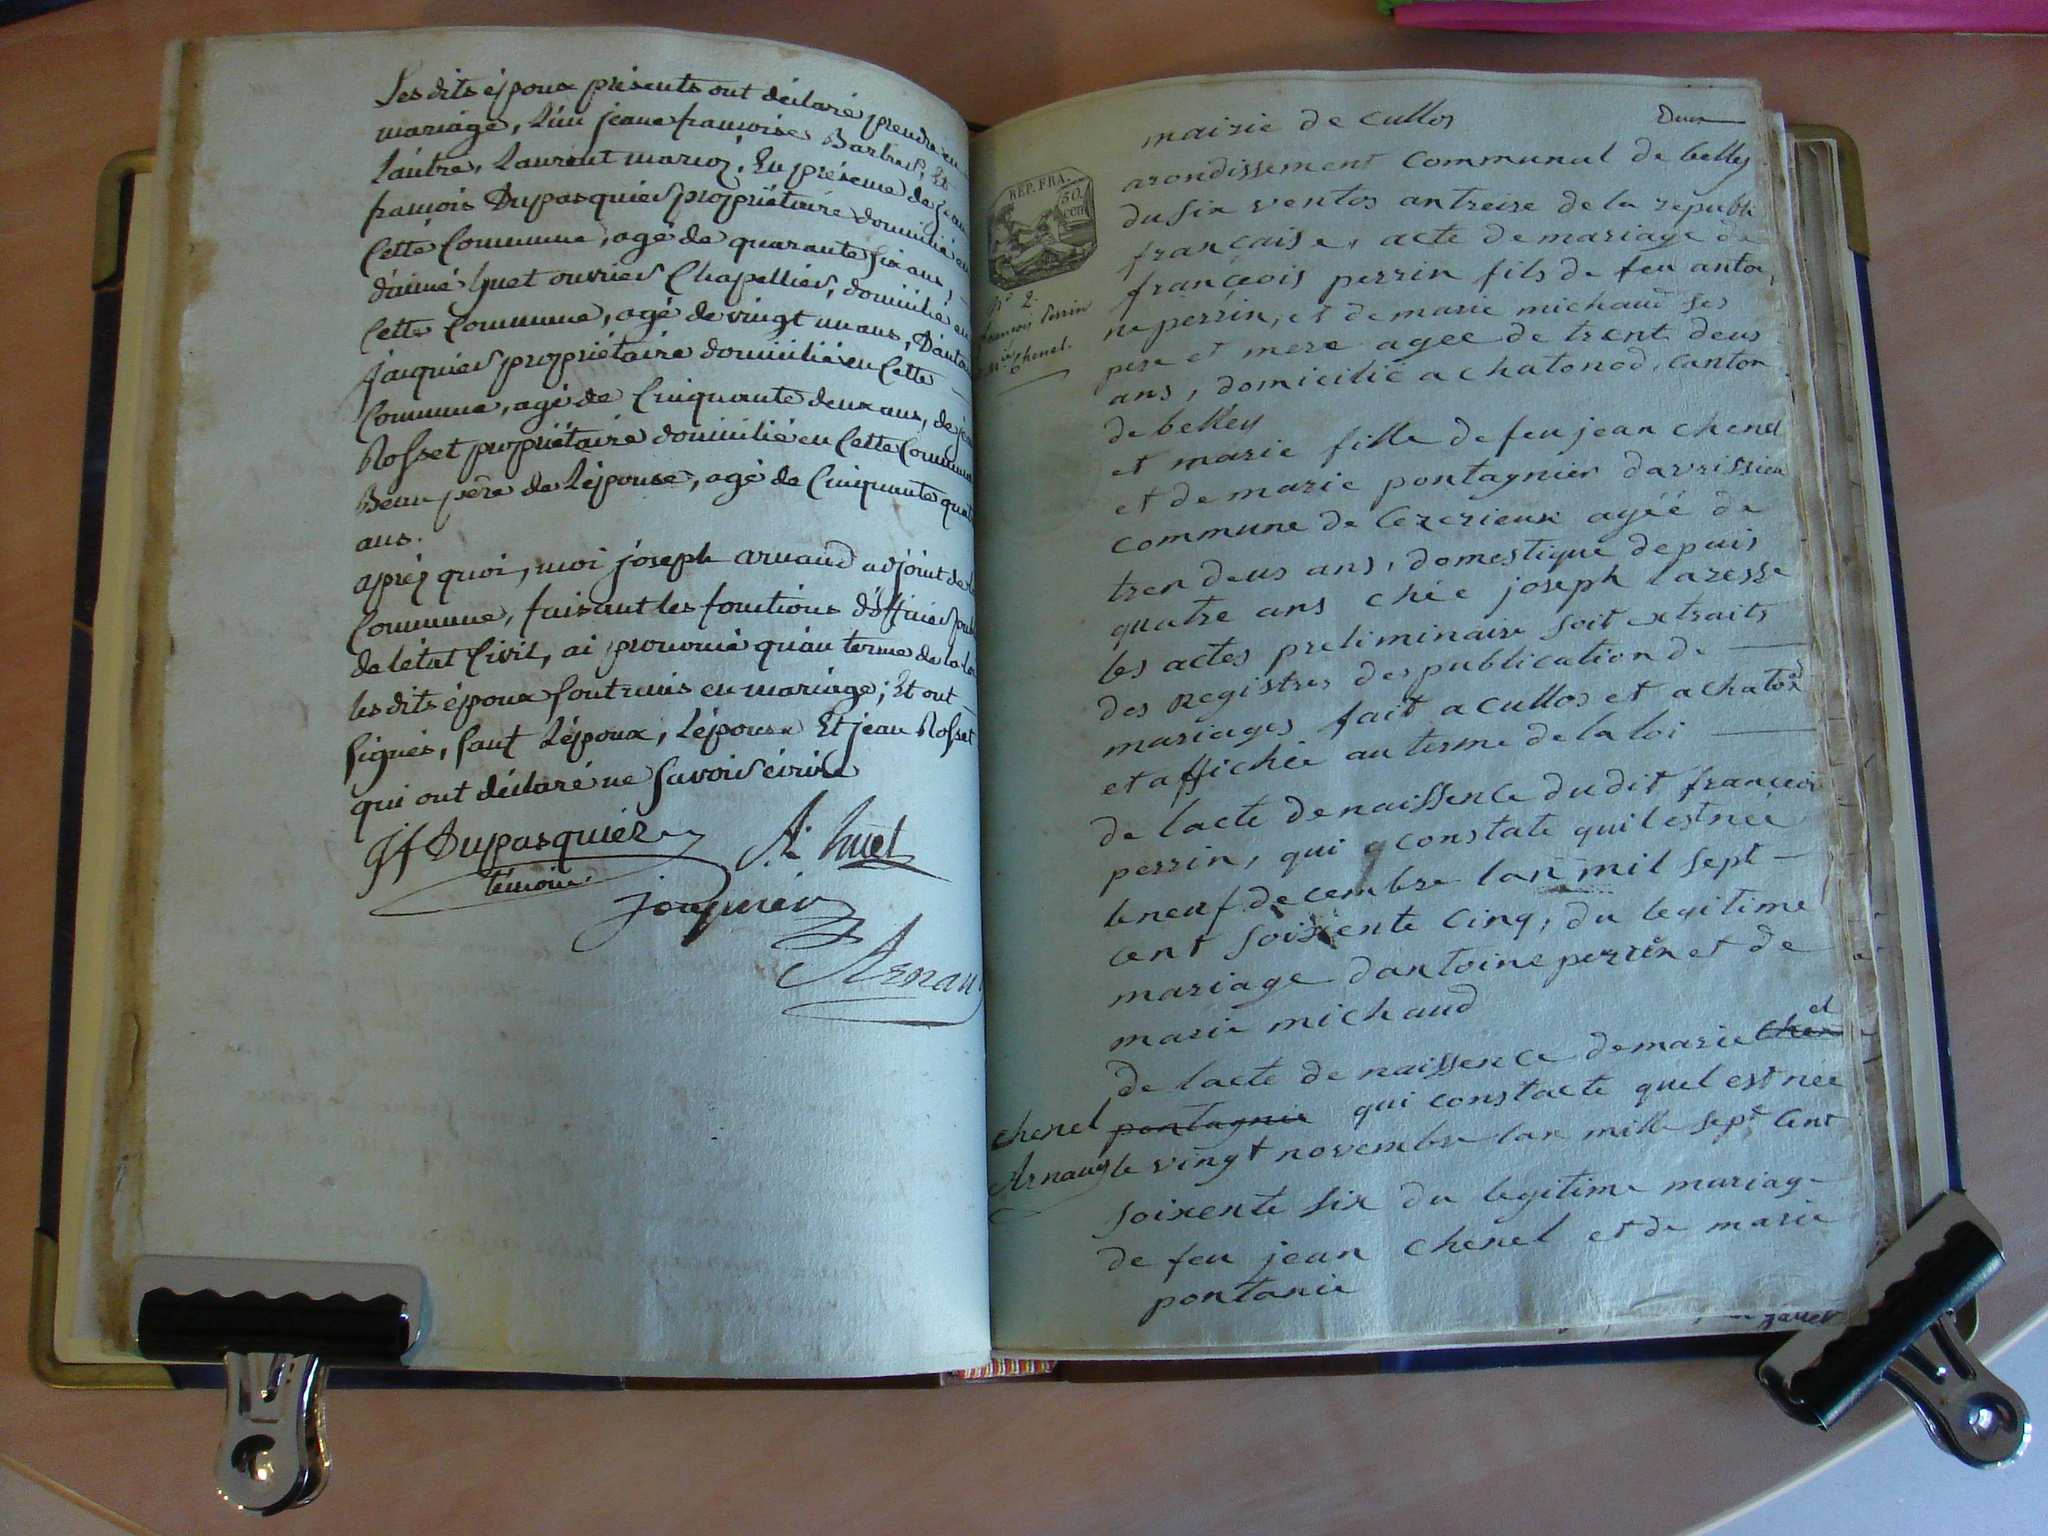 Les dits époux présents ont déclaré prendre en
mariage, l'un jeane francoise Barbret, Et
l'autre, Laurent . En présence de jean
francois Dupasquier propriétaire domicilié en
Cette Commune, agé de quarante six ans,
d'aimé huet ouvrier Chapellier, domicilié en
Cette Commune, agé de vingt un ans, D'anto
jacquier propriétaire domicilié en Cette
Commune, agé de Cinquante deux ans, de jean
Rosset propriétaire domicilié en Cette Commune
Beau père de L'épouse, agé de Cinquante quat
ans.
après quoi, moi joseph arnaud adjoint de la
Commune, faisant les fonctions d'officier pub
de l'état Civil, ai prononcé qu'au terme de la loi
les dits époux sont unis en mariage; Et ont
signés, sauf L'époux, L'épouse Et jean Rosset
qui ont déclaré ne savoir écrire
jf Dupasquier
témoin.
A. huet
jacquier
Arnau
Deux
mairie de cullos
arondissement communal de belley
du six ventos an treise de la republi
française, acte de mariage de
françois perrin fils de feu antoi
ne perrin, et de marie michaud ses
pere et mere agee de trent deus
ans, domicilié a chatonod, canton
de belley
et marie fille de feu jean chenel
et de marie pontagnier d'avrissieu
commune de cezerieux agéé de
tren deus ans, domestique depuis
quatre ans chée joseph lazesse
les actes preliminaire soit extraits
des registres des publication de
mariages fait a cullos et a chatod
et affichée au terme de la loi
de lacte de naissence du dit françois
perrin, qui constate quil est née
le neuf decembre lan mil sept
cent soixente cinq, du legitime
mariage dantoine perrin et de
marie michaud
de lacte de naissence de marie chenel
pontagnie qui constacte quel est née
le vingt novembre lan mille sept cent
soixente six du legitime mariage
de feu jean chenel et de marie
pontanie
REP. FRA.
50
cen
N° 2.
françois Perrin
Mie Chenel.
chenel
Arnaud